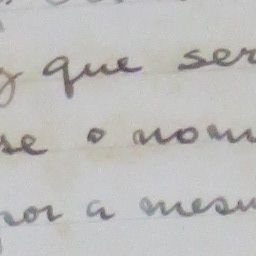 que ser
se o nom
por a mesm